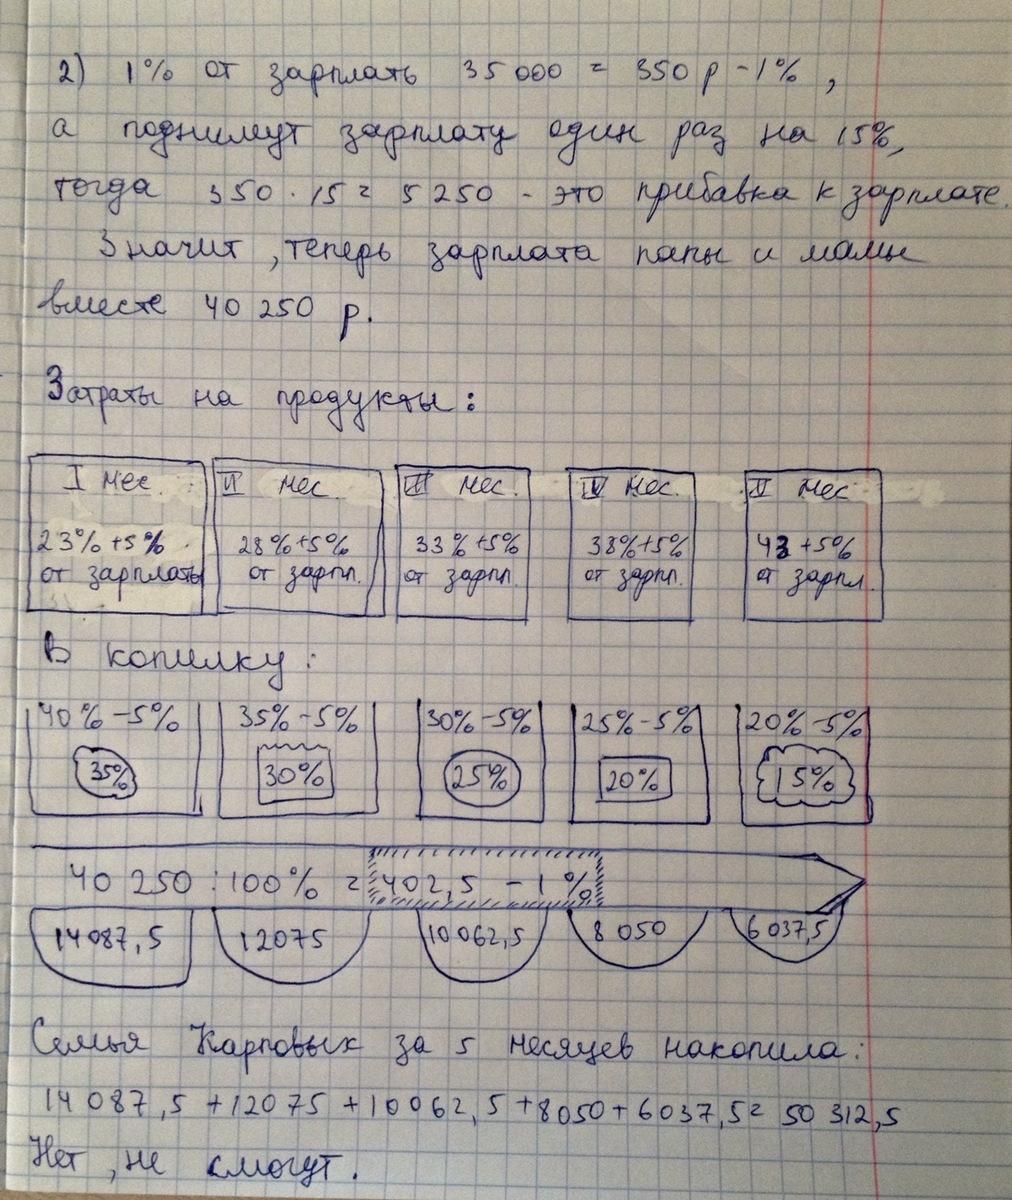 2) 1% от зарплаты 35 000 = 350 р - 1% ,
а поднимут зарплату один раз на 15%,
тогда 350 · 15 = 5 250 - это прибавка к зарплате.
Значит , теперь зарплата папы и мамы
вместе 40 250 р.
Затраты на продукты :
I мес. II мес. III мес. IV мес. V мес
23% +5% 28% +5% 33% +5% 38% +5% 43 +5%
от зарплаты от зарпл. от зарпл. от зарпл. от зарпл.
В копилку :
40% -5% 35% -5% 30% -5% 25% -5% 20% -5%
35% 30% 25% 20% 15%
40 250 : 100% = 402,5 - 1%
14 087,5 12075 10 062,5 8 050 6 037,5
Семья Карповых за 5 месяцев накопила :
14 087,5 + 12 075 + 10 062,5 + 8050 + 6 037,5 = 50 312,5
Нет , не смогут .